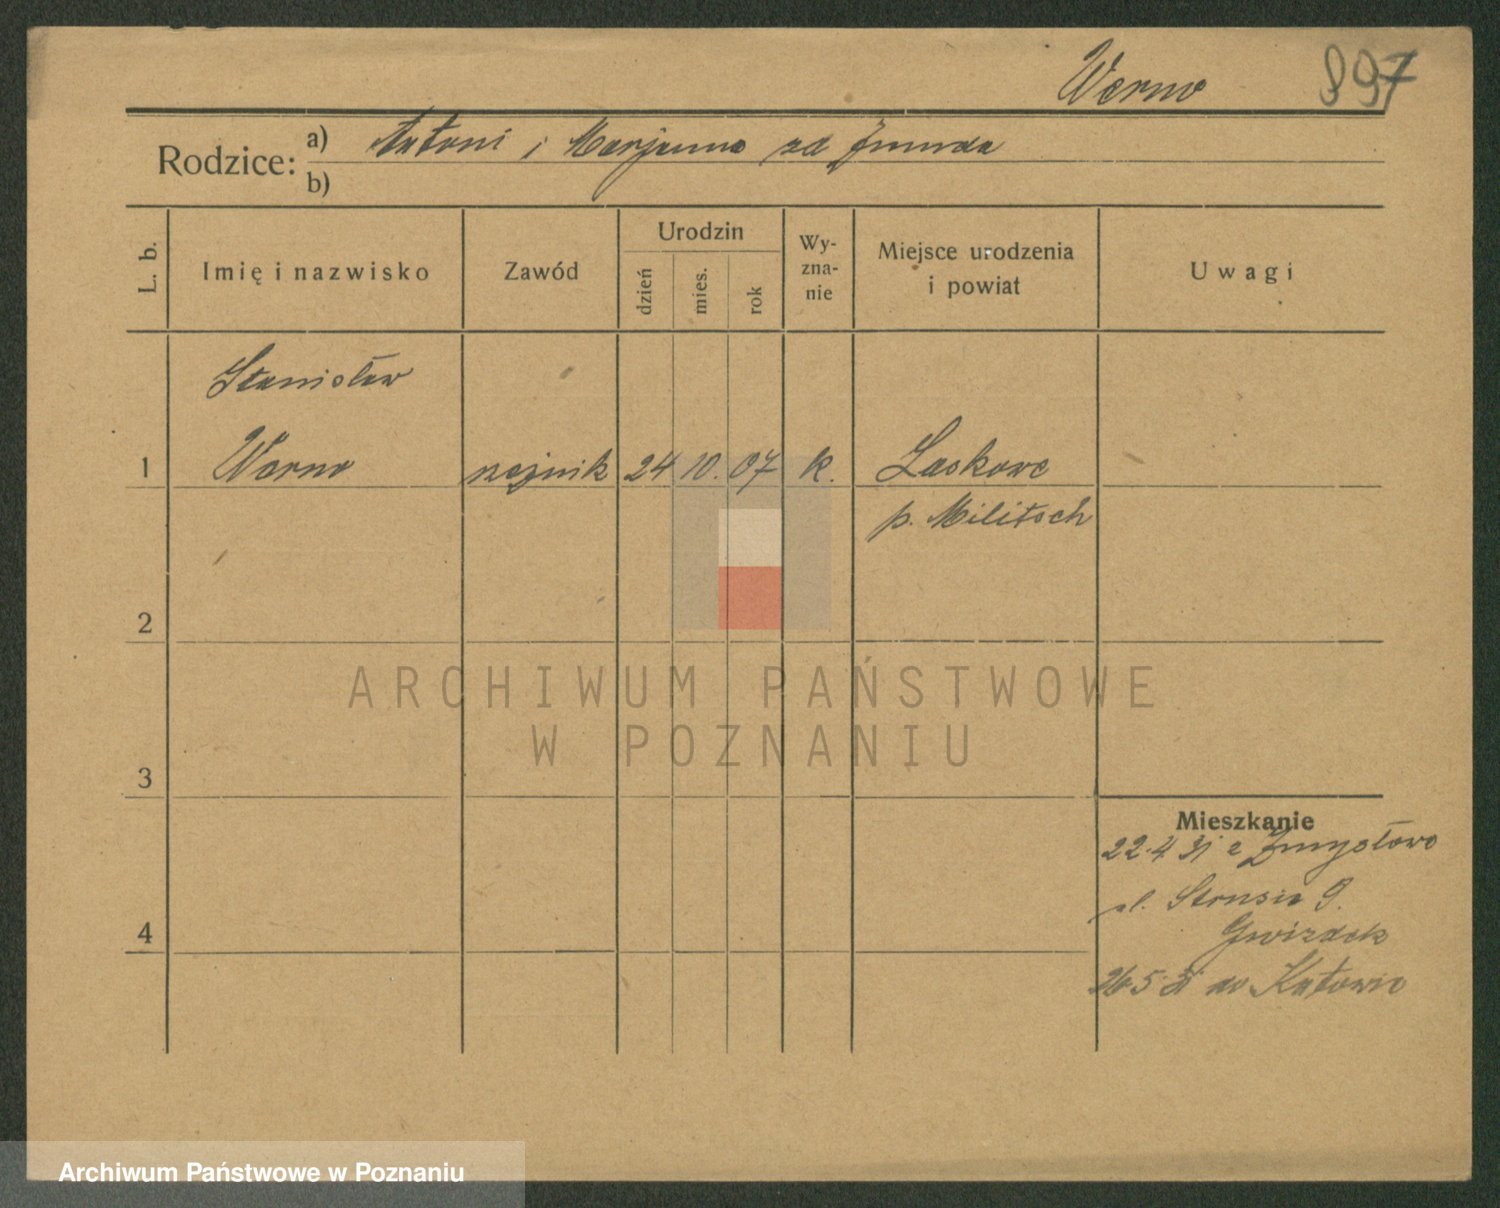 Werno 897
Rodzice: a) Antoni i Marjanna zd Żmuda
b)
L. b. Imię i nazwisko Zawód Urodzin dzień mies. rok Wy-zna-nie Miejsce urodzenia i powiat Uwagi
Stanisław
1 Werno rzeźnik 24 10. 07 k. Laskowe
p. Militsch
2
3
4
Mieszkanie
22.4 31 z Zmysłowo
ul. Strusia 9.
Gwizdek
26 5 31 do Katowic
ARCHIWUM PAŃSTWOWE
W POZNANIU
Archiwum Państwowe w Poznaniu